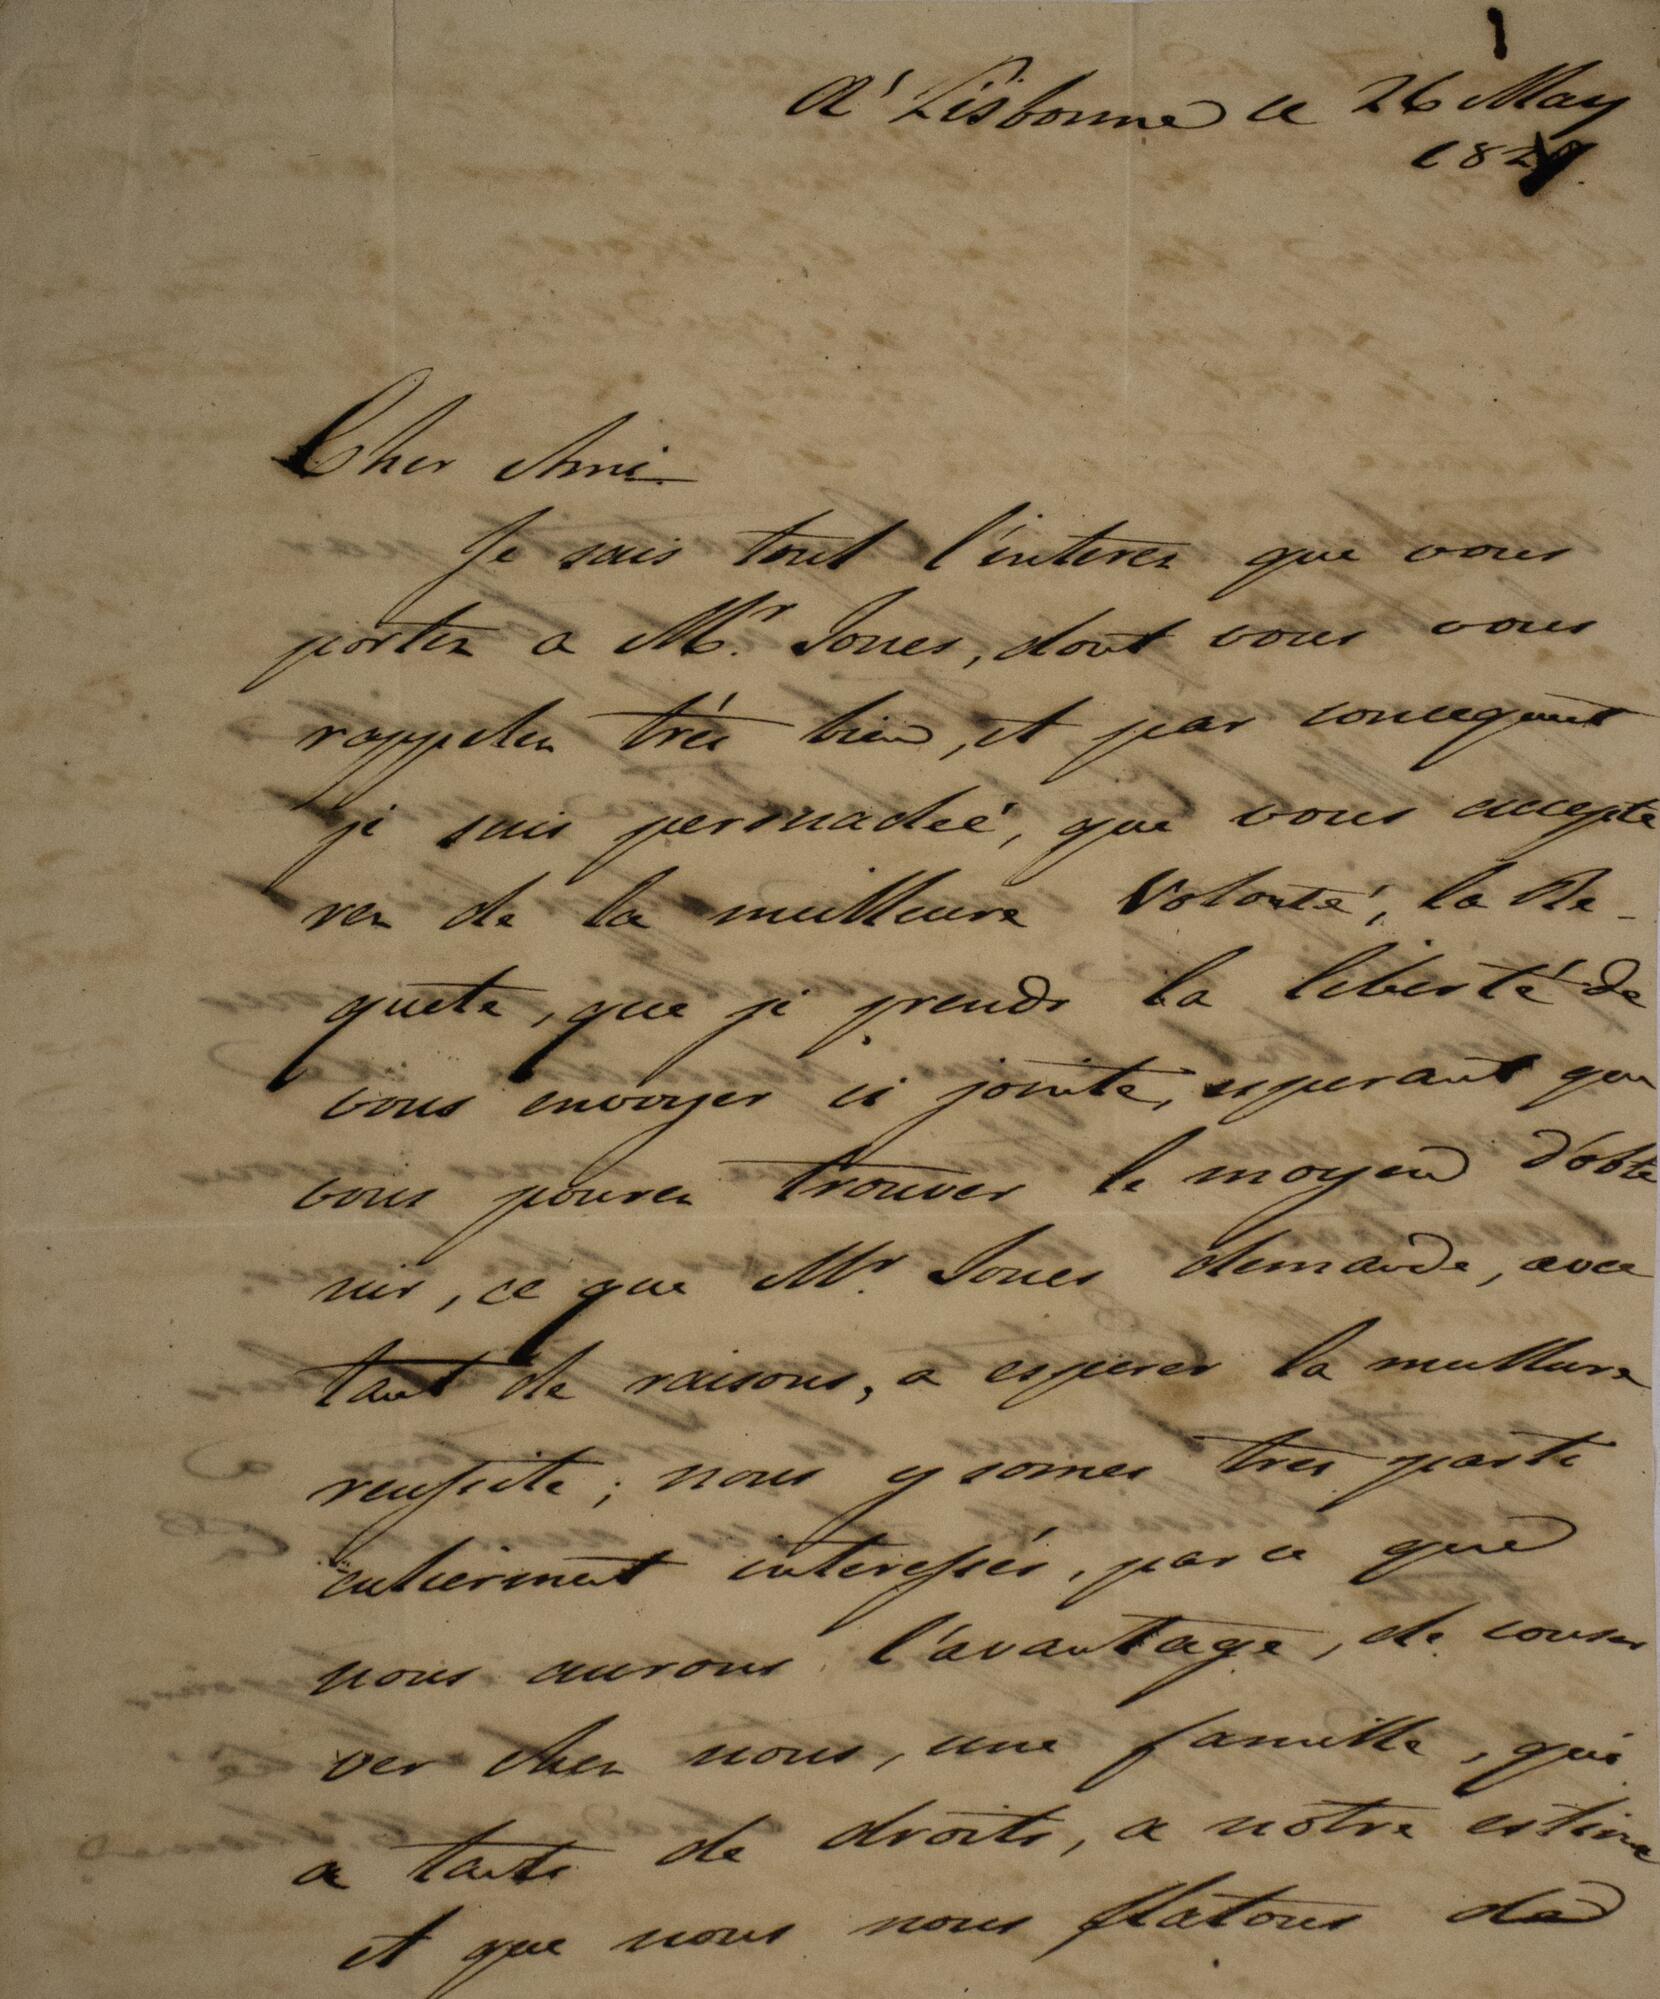 A' Lisbonne ce 26 May
182
Cher Ami
Je sais tout l'interez que vous
portez a Mr. Jones, dont vous vous
rappelez trés bien, et par consequent
je suis persuadeé, que vous accepte
rez de la meilleure Volonté, la Re-
quete, que je prends la liberté de
vous envoyer ci jointe, esperant que
vous pourez trouver le moyen d'obte
nir, ce que Mr. Jones demande, avec
tant de raisons, a esperer la meilleure
reussite; nous y somes tres parti
culierment interessés, par ce que
nous aurons l'avantage, de conser
ver chez nous, une famille, qui
a tants de droits, a notre estime
et que nous nous flatons de